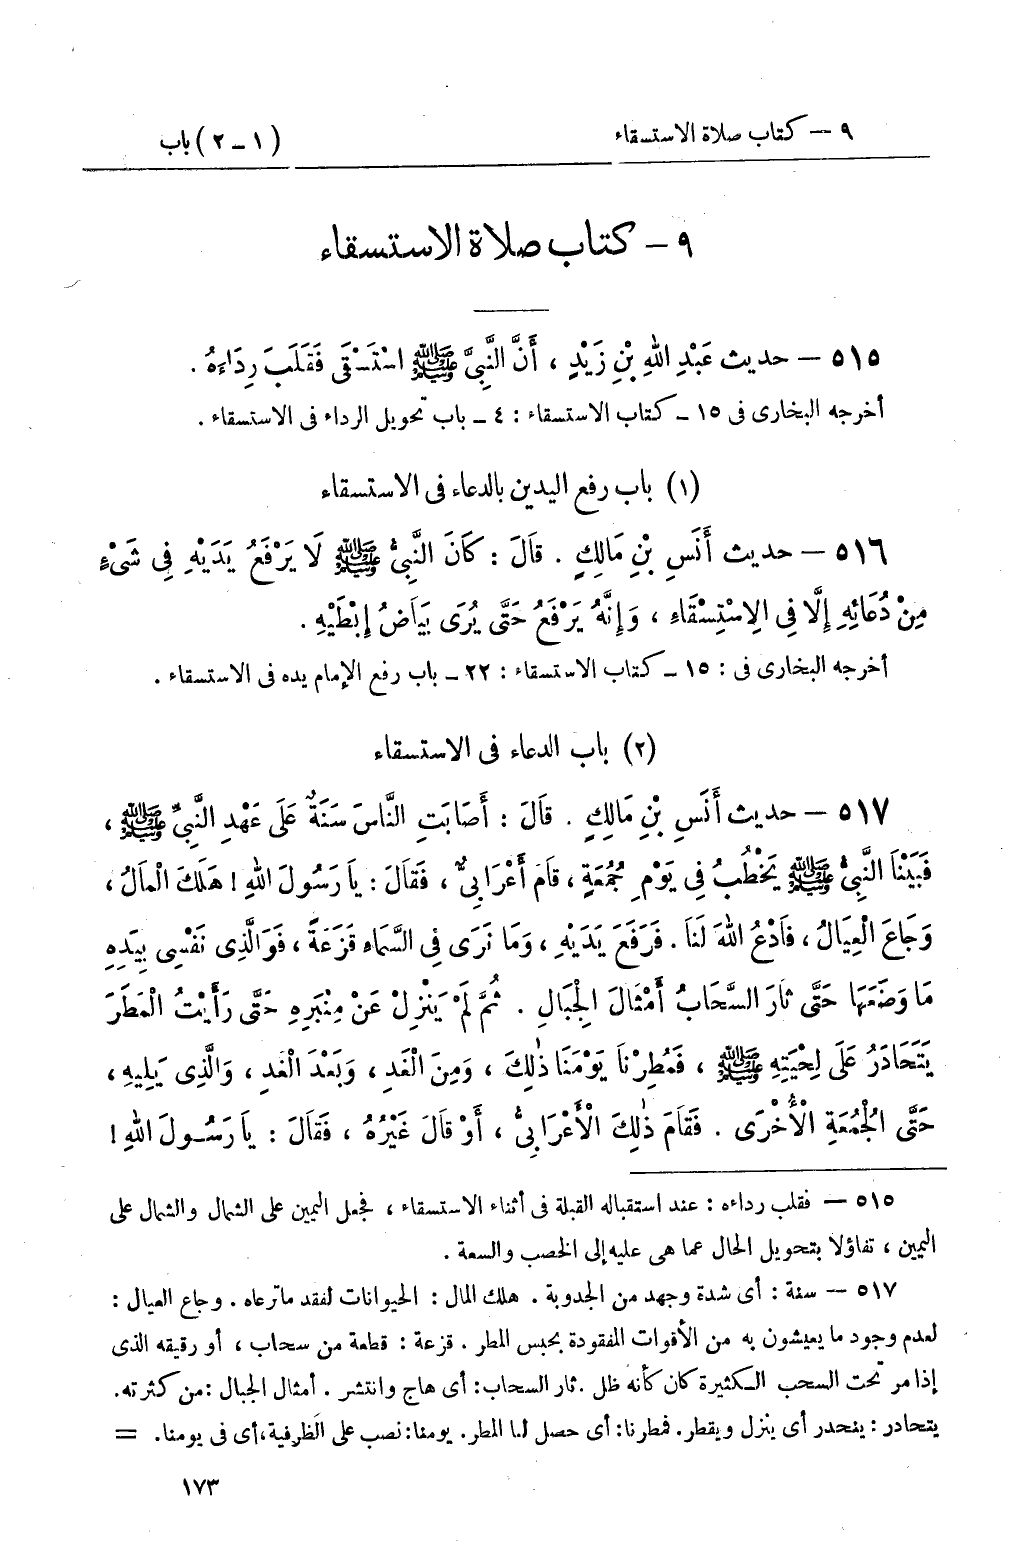 ٩ – كتاب صلاة الاستسقاء
(١ – ٢) باب
٩ – كتاب صلاة الاستسقاء
٥١٥ – حديث عَبْدِ اللهِ بْنِ زَيْدٍ ، أَنَّ النَّبِيَّ ﷺ اسْتَسْقَى فَقَلَبَ رِدَاءَهُ .
أخرجه البخارى فى ١٥ – كتاب الاستسقاء : ٤ – باب تحويل الرداء فى الاستسقاء .
(١) باب رفع اليدين بالدعاء فى الاستسقاء
٥١٦ – حديث أَنَسِ بْنِ مَالِكٍ . قَالَ : كَانَ النَّبِيُّ ﷺ لَا يَرْفَعُ يَدَيْهِ فِي شَىْءٍ
مِنْ دُعَائِهِ إِلَّا فِي الِاسْتِسْقَاءِ ، وَإِنَّهُ يَرْفَعُ حَتَّى يُرَى بَيَاضُ إِبْطَيْهِ .
أخرجه البخارى فى : ١٥ – كتاب الاستسقاء : ٢٢ – باب رفع الإمام يده فى الاستسقاء .
(٢) باب الدعاء فى الاستسقاء
٥١٧ – حديث أَنَسِ بْنِ مَالِكٍ . قَالَ : أَصَابَتِ النَّاسَ سَنَةٌ عَلَى عَهْدِ النَّبِيِّ ﷺ ،
فَبَيْنَا النَّبِيُّ ﷺ يَخْطُبُ فِي يَوْمِ جُمُعَةٍ ، قَامَ أَعْرَابِيٌّ ، فَقَالَ : يَا رَسُولَ اللهِ ! هَلَكَ الْمَالُ ،
وَجَاعَ الْعِيَالُ ، فَادْعُ اللهَ لَنَا . فَرَفَعَ يَدَيْهِ ، وَمَا نَرَى فِي السَّمَاءِ قَزَعَةً ، فَوَالَّذِى نَفْسِى بِيَدِهِ
مَا وَضَعَهَا حَتَّى ثَارَ السَّحَابُ أَمْثَالَ الْجِبَالِ . ثُمَّ لَمْ يَنْزِلْ عَنْ مِنْبَرِهِ حَتَّى رَأَيْتُ الْمَطَرَ
يَتَحَادَرُ عَلَى لِحْيَتِهِ ﷺ ، فَمُطِرْنَا يَوْمَنَا ذٰلِكَ ، وَمِنَ الْغَدِ ، وَبَعْدَ الْغَدِ ، وَالَّذِى يَلِيهِ ،
حَتَّى الْجُمُعَةِ الْأُخْرَى . فَقَامَ ذٰلِكَ الْأَعْرَابِيُّ ، أَوْ قَالَ غَيْرُهُ ، فَقَالَ : يَا رَسُولَ اللهِ !
٥١٥ – فقلب رداءه : عند استقباله القبلة فى أثناء الاستسقاء ، فجعل اليمين على الشمال والشمال على
اليمين ، تفاؤلا بتحويل الحال عما هى عليه إلى الخصب والسعة .
٥١٧ – سنة : أى شدة وجهد من الجدوبة . هلك المال : الحيوانات لفقد ما ترعاه . وجاع العيال :
لعدم وجود ما يعيشون به من الأقوات المفقودة بحبس المطر . قزعة : قطعة من سحاب ، أو رقيقه الذى
إذا مر تحت السحب الكثيرة كان كأنه ظل . ثار السحاب : أى هاج وانتشر . أمثال الجبال : من كثرته .
يتحادر : ينحدر أى ينزل ويقطر . فمطرنا : أى حصل لنا المطر . يومنا : نصب على الظرفية ، أى فى يومنا . =
١٧٣